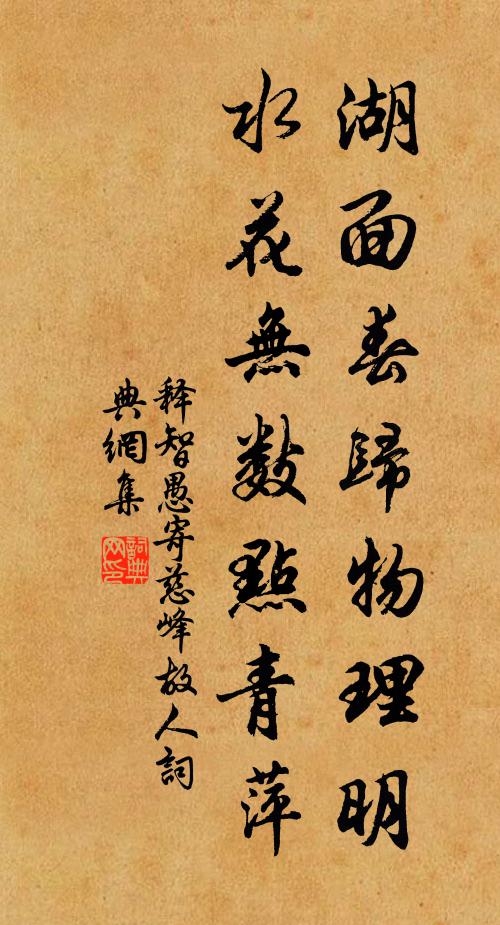 湖面春歸物理明
水花無數點青萍
释智愚寄慈峰故人詞
典網集
詞典
网印